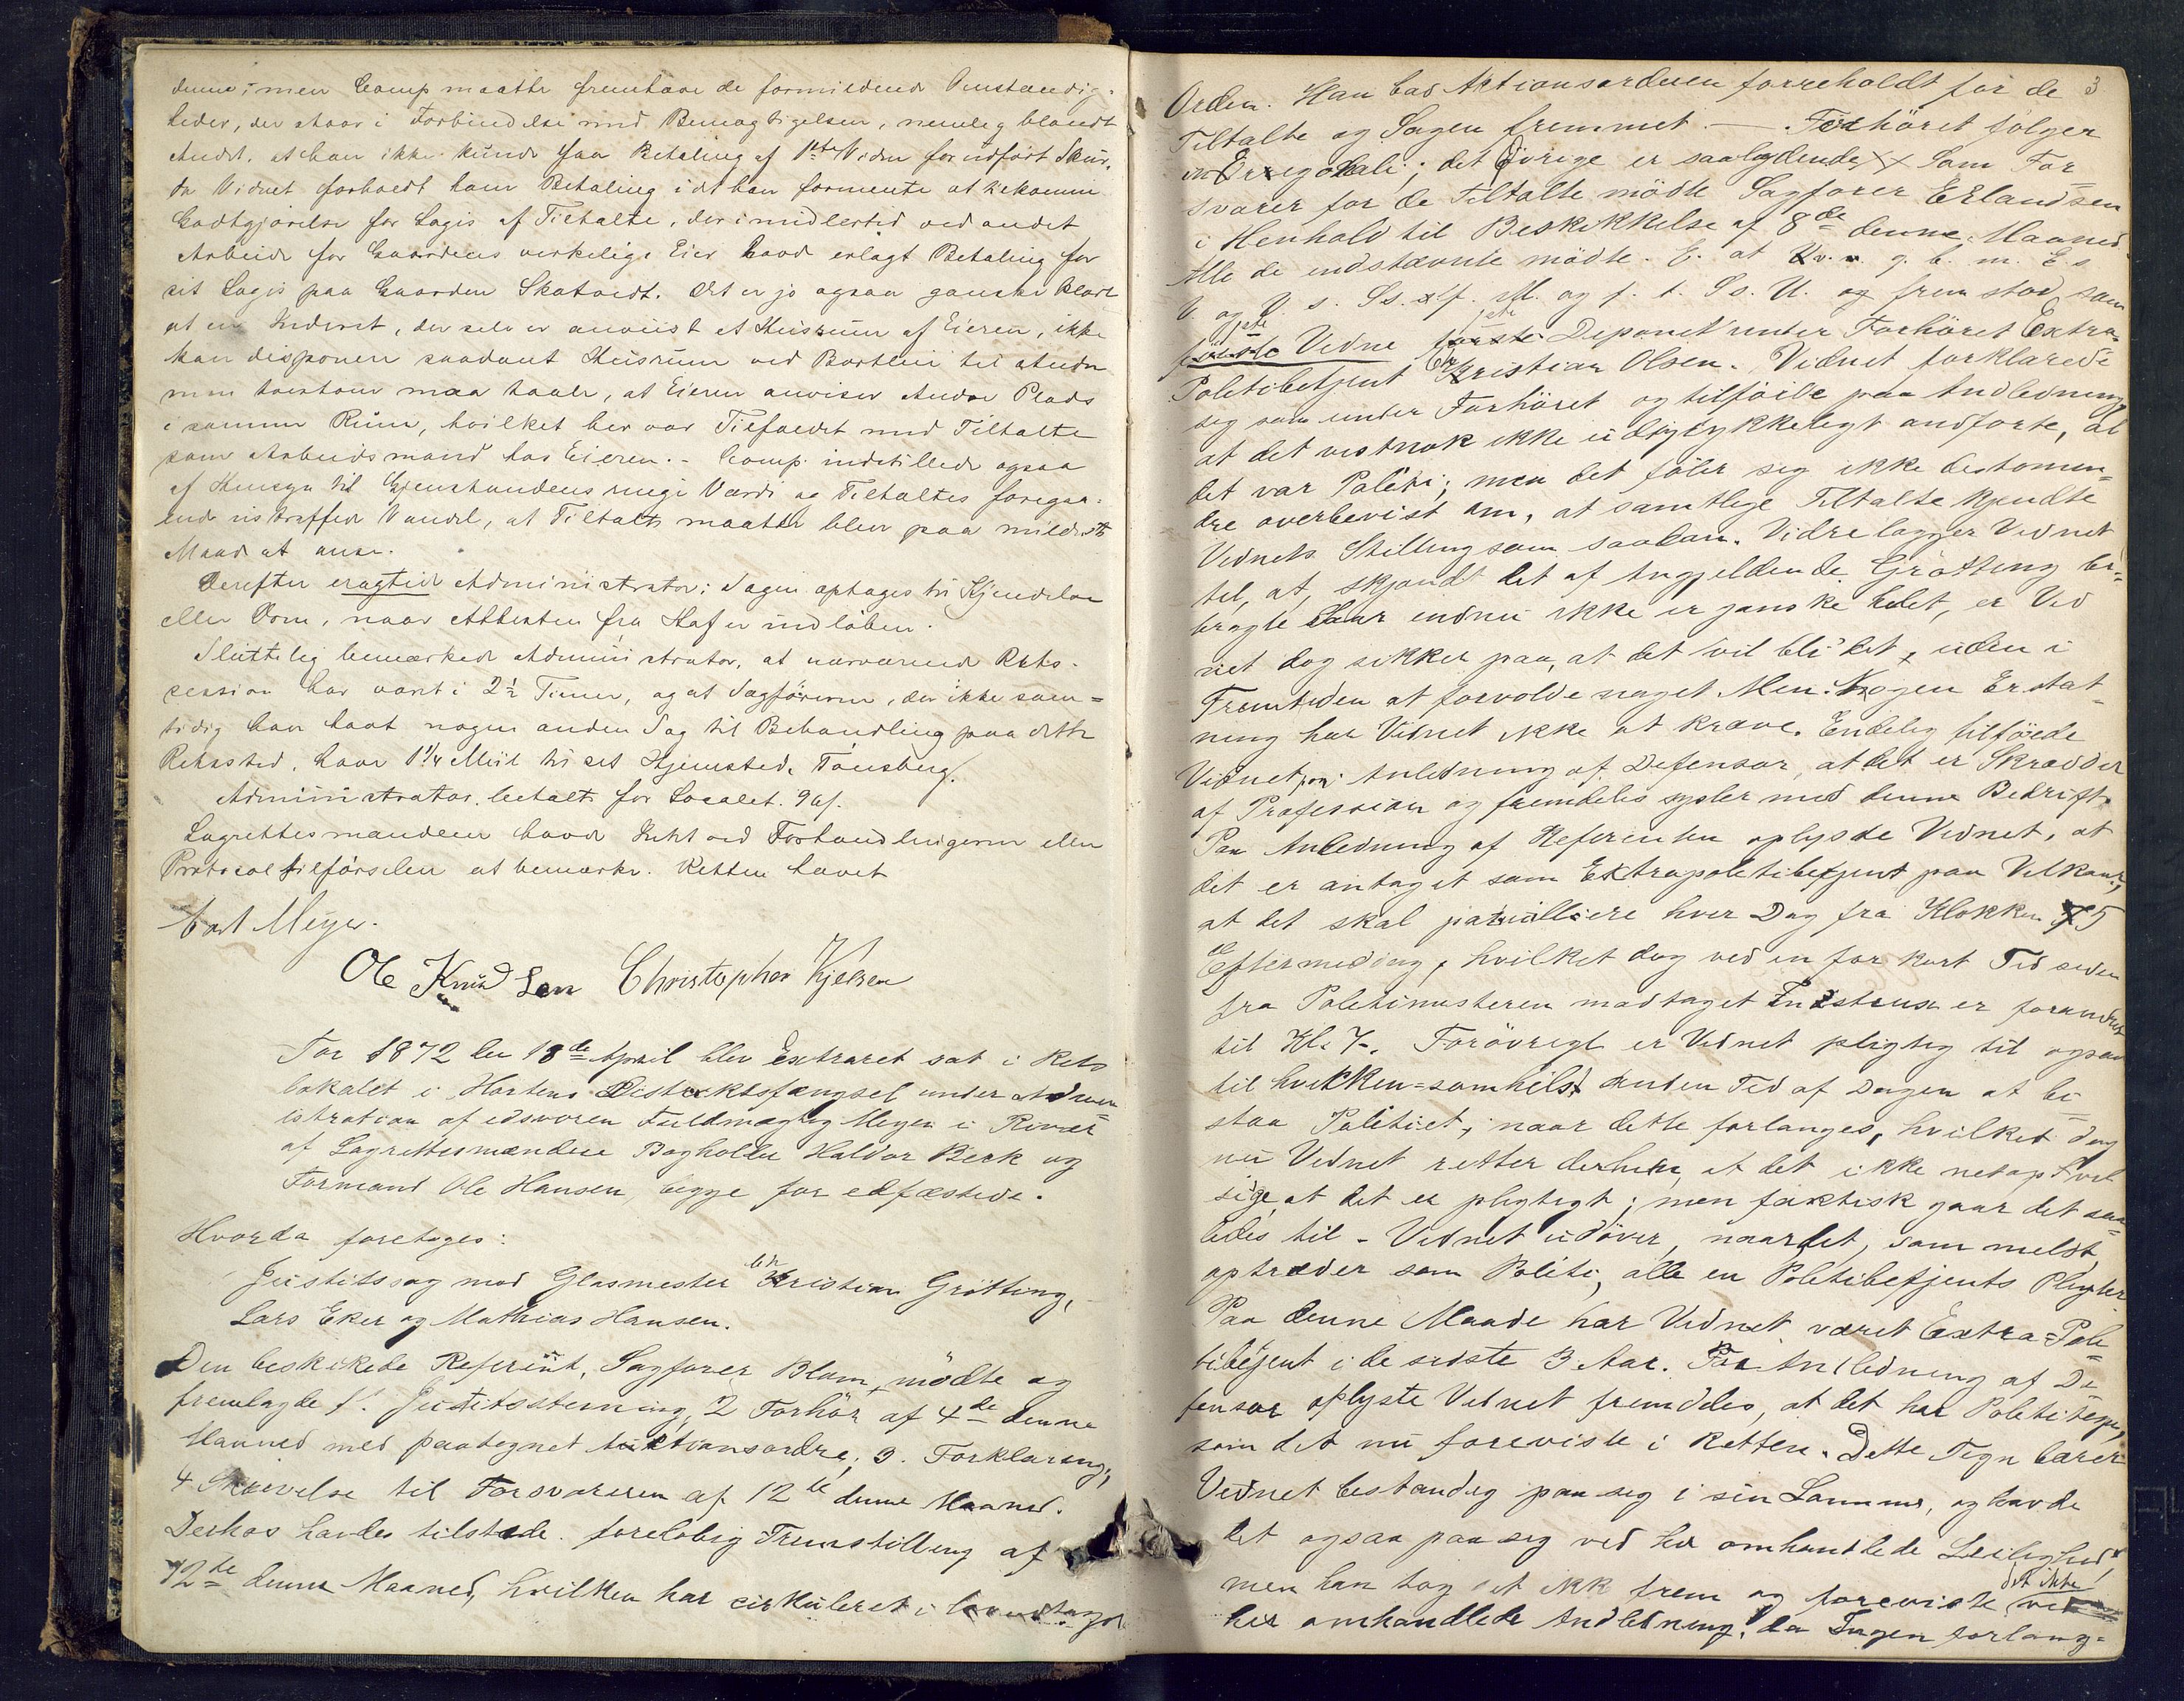 denne; men Comp maatte fremhæve de formildende Omstændig-
heder, der staar i Forbindelse med Bemægtigelsen, nemlig blandt
Andet, at han ikke kunde faa Betaling af 1ste Vidne for udført Skur,
da Vidnet forholdt ham Betaling idet han formente at bekomme
Godtgjørelse for Logis af Tiltalte, der imidlertid ved andet
Arbeide for Gaardens virkelige Eier havde erlagt Betaling for
sit Logis paa Gaarden Skatvedt. Det er jo ogsaa ganske klart
at en Inderst, der selv er anviist et Huusrum af Eieren, ikke
kan disponere saadant Huusrum ved Bortleie til Andre
men tvertom maa taale, at Eieren anviser Andre Plads
i samme Rum, hvilket her var Tilfældet med Tiltalte
som Arbeidsmand hos Eieren. - Comp. indstillede ogsaa
af Hensyn til Gjenstandens ringe Værdi og Tiltaltes foregaa-
ende ustraffede Vandel, at Tiltalte maatte blive paa mildeste
Maade at anse.
Derefter eragtede Administrator: Sagen optages til Kjendelse
eller Dom, naar Attesten fra Hof er indløben.
Sluttelig bemærkede Administrator, at nærværende Rets-
session har varet i 2½ Timer, og at Sagføreren, der ikke sam=
tidig har havt nogen anden Sag til Behandling paa dette
Retssted, haver 1¼ Miil til sit Hjemsted, Tønsberg.
Administrator betalte for Localet. 96s.
Lagrettesmændene havde Intet ved Forhandlingerne eller
Protocoltilførselen at bemærke. Retten hævet
Carl Meyer.
Ole Knudsen Christopher Kjelsen
Aar 1872 den 18de April blev Extraret sat i Rets
lokalet i Hortens Distriktsfængsel under Admin
istration af edsvoren Fuldmægtig Meyer i Nærvær
af Lagrettesmændene Bogholder Haldor Berk og
Formand Ole Hansen, begge for edfæstede.
Hvorda foretoges:
Justitssag mod Glasmester Christian Grøtting,
Lars Eker og Mathias Hansen.
Den beskikkede Referent, Sagfører Blom, mødte og
fremlagde 1. Justitsstevning, 2 Forhør af 4de denne
Maaned med paategnet Aktionsordre; 3. Forklaring;
4 Skrivelse til Forsvareren af 12te denne Maaned.
Derhos havdes tilstede foreløbig Fremstilling af
12te denne Maaned, hvilken har cirkuleret i
3
Orden. Han bad Aktionsordenen foreholdt for de
Tiltalte og Sagen fremmet. — Forhøret følger
in Originali; det Øvrige er saalydende Som For
svarer for de Tiltalte mødte Sagfører Erlandsen
i Henhold til Beskikkelse af 8de denne Maaned.
Alle de indstævnte mødte. E. at V. v. g. b. m. E s
V. og V. s. Ss. alf. Ml. og f. t. Ss. U. og frem stod som
1ste Vidne 1ste Deponent under Forhøret Extra-
Politibetjent Christian Olsen. Vidnet forklarede
sig som under Forhøret og tilføiede paa Anledning
at det vistnok ikke udtrykkeligt anførte, at
det var Politi; men det føler sig ikke destomin=
dre overbevist om, at samtlige Tiltalte kjendte
Vidnets Stilling som saadan. Vidre lægger Vidnet
til, at, skjøndt det af Angjeldende Grøtting bi=
bragte Saar endnu ikke er ganske helet, er Vid
net dog sikker paa, at det vil bli det, uden i
Fremtiden at forvolde noget Men. Nogen Erstat-
ning har Vidnet ikke at kræve. Endelig tilføiede
Vidnet paa Anledning af Defensor, at det er Skrædder
af Profession og fremdeles sysler med denne Bedrift.
Paa Anledning af Referenten oplyste Vidnet, at
det er antaget som Extrapolitibetjent paa Vilkaar,
at det skal patrullere hver Dag fra Klokken 5
Eftermiddag, hvilket dog ved en for kort Tid siden
fra Politimesteren modtaget Instrux er forandret
til Kl. 7. Forøvrigt er Vidnet pligtig til ogsaa
til hvilken=somhelst anden Tid af Dagen at bi
staa Politiet, naar dette forlanges, hvilket dog
nu Vidnet retter derhen, at det ikke netop vil
sige, at det er pligtigt; men faktisk gaar det saa=
ledes til - Vidnet udøver, naar det, som meldt,
optræder som Politi, alle en Politibetjents Pligter.
Paa denne Maade har Vidnet været Extra=Poli
tibetjent i de sidste 3 Aar. Paa Anledning af De
fensor oplyste Vidnet fremdeles, at det har Polititegn,
som det nu foreviste i Retten. Dette Tegn bærer
Vidnet bestandig paa sig i sin Lomme, og havde
det ogsaa paa sig ved her omhandlede Leilighed,
men han tog det ikke frem og foreviste det ikke ved
her omhandlede Anledning, da Ingen forlang=